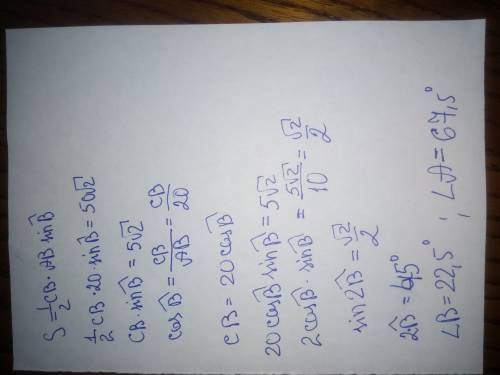 S = 1/2 CB · AB sin B̂
1/2 CB · 20 · sin B̂ = 50√2
CB · sin B̂ = 5√2
cos B̂ = CB/AB = CB/20
CB = 20 cos B̂
20 cos B̂ sin B̂ = 5√2
2 cos B̂ · sin B̂ = 5√2/10 = √2/2
sin 2B̂ = √2/2
2B̂ = 45°
∠B = 22,5° ; ∠A = 67,5°